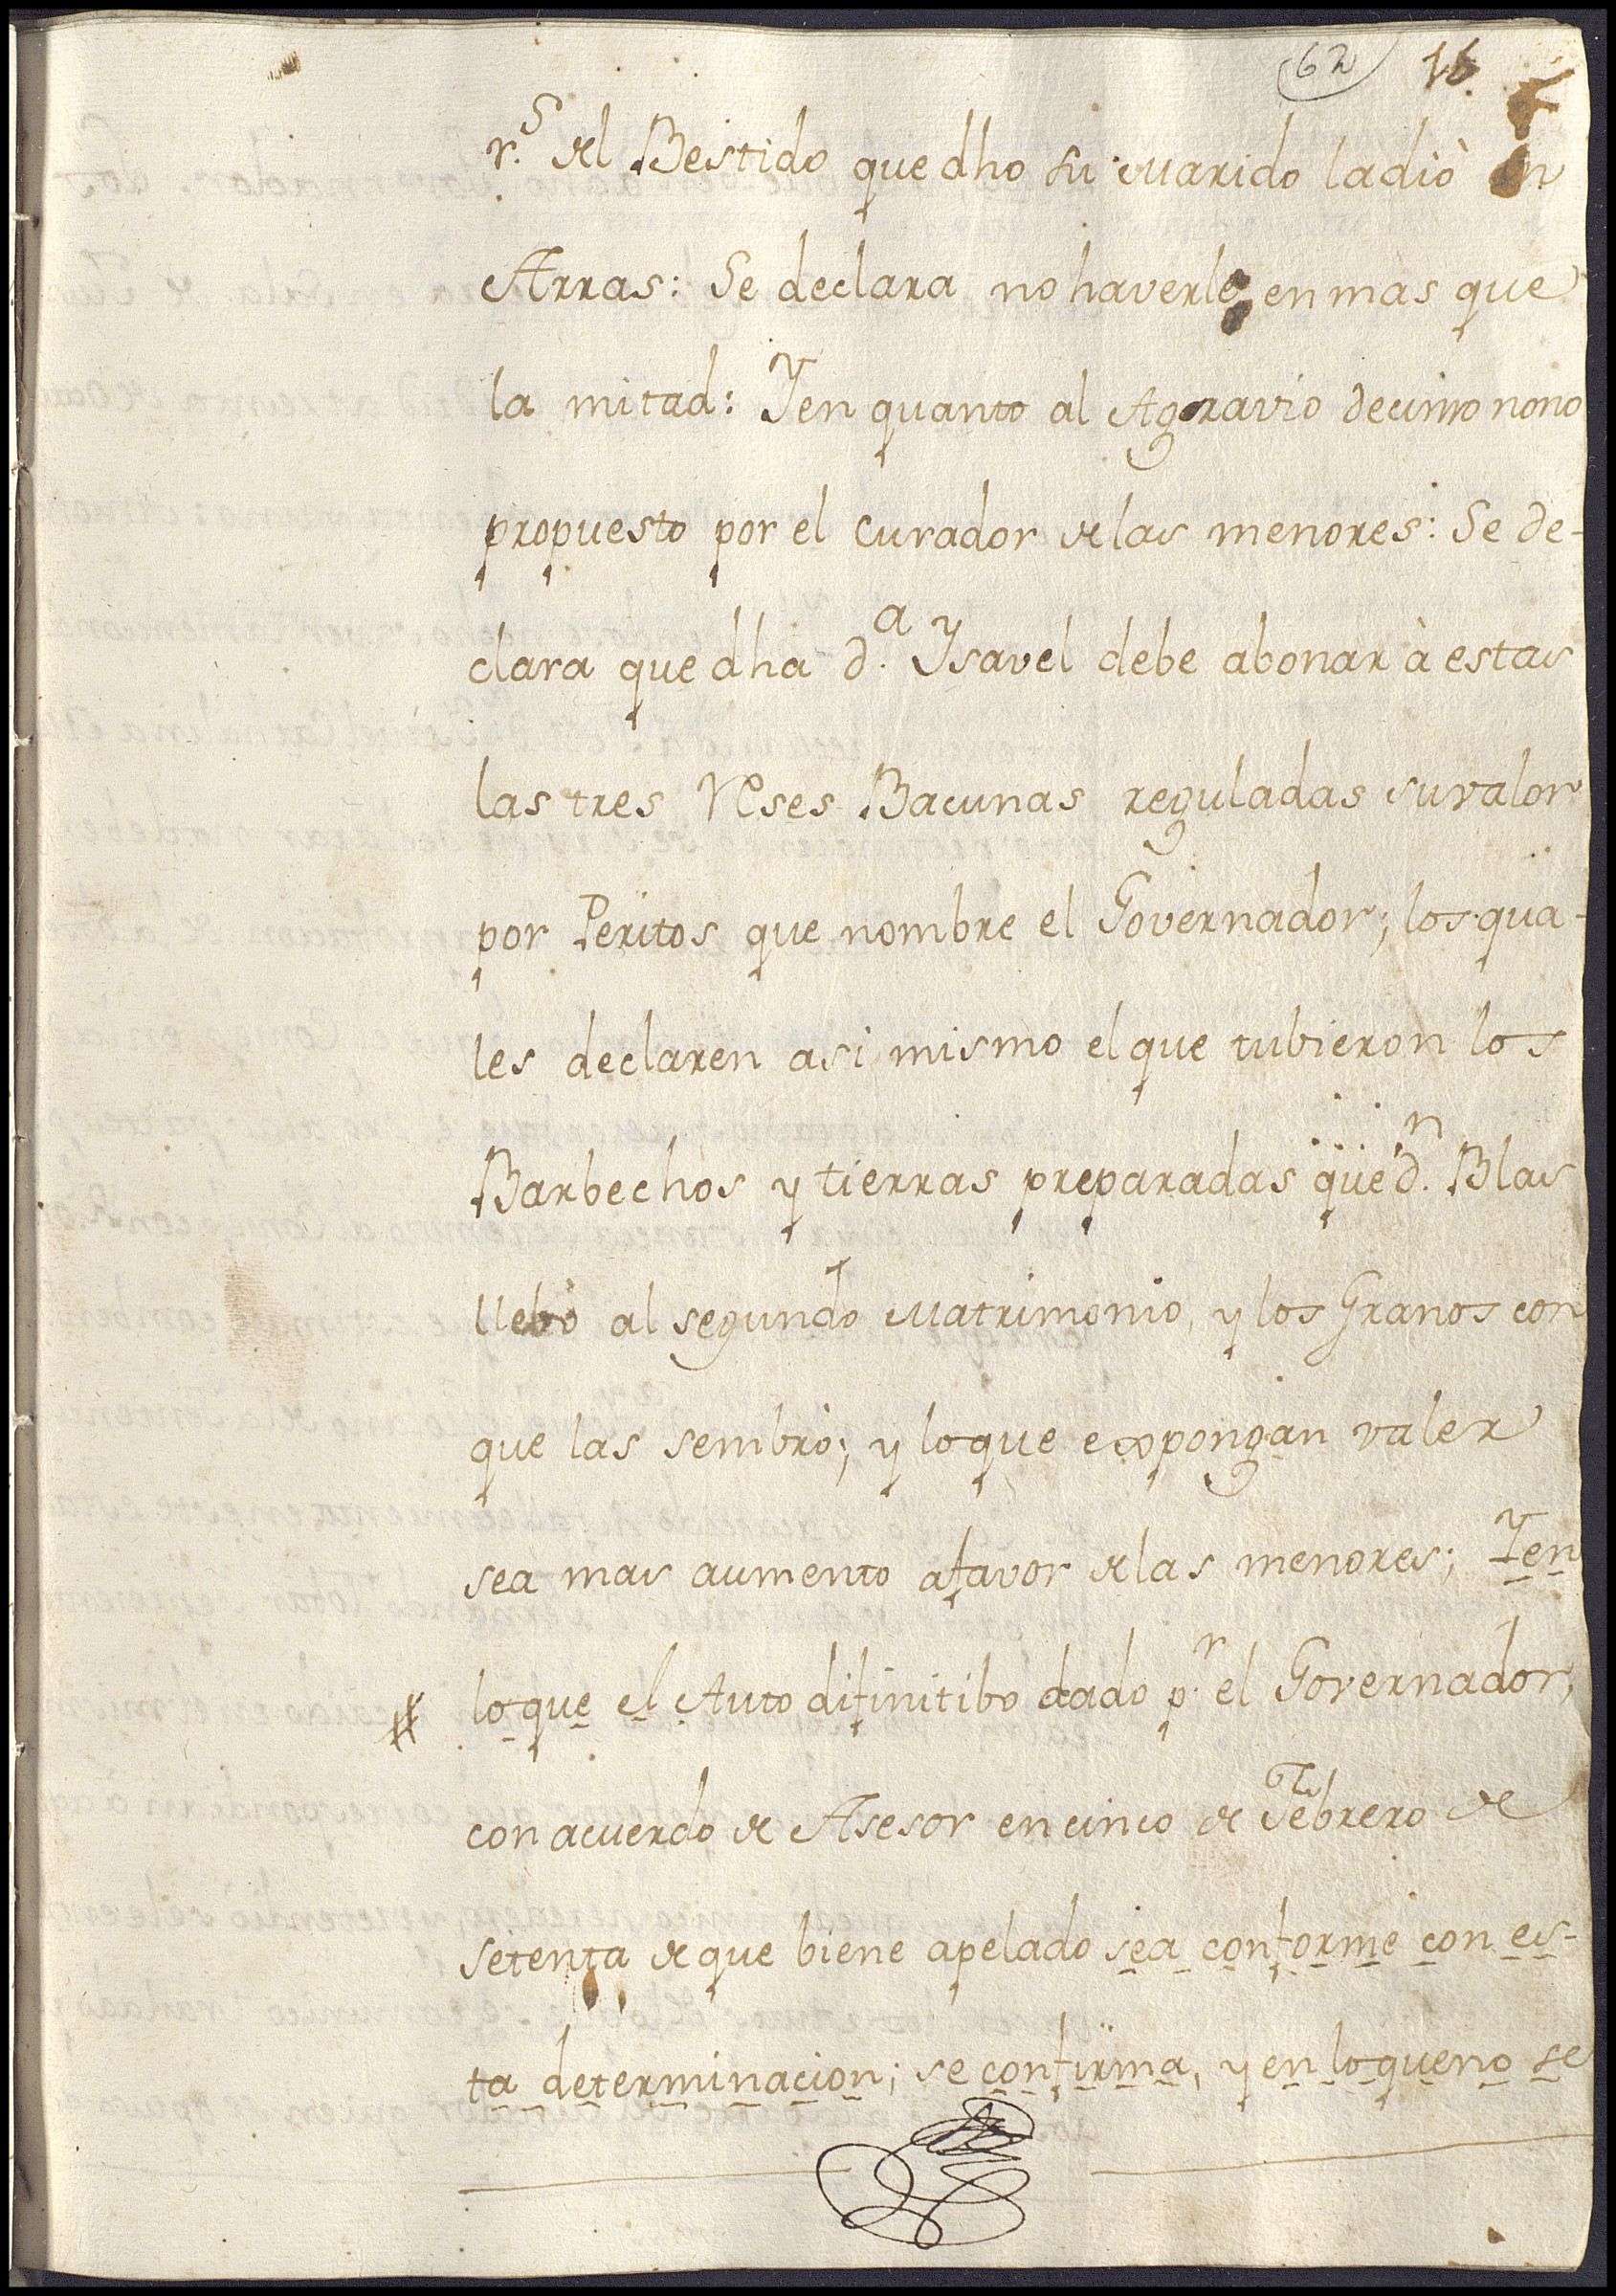 62 16.
r.s del Bestido que dho su Marido la diò en
Arras: Se declara no haverlo en mas que
la mitad: Y en quanto al Agravio decimo nono
propuesto por el curador de las menores: Se de-
clara que dha d.a Ysavel debe abonar à estas
las tres Reses Bacunas reguladas su valor
por Peritos que nombre el Governador; los qua-
les declaren asi mismo el que tubieron los
Barbechos y tierras preparadas que d.n Blas
llebò al segundo Matrimonio, y los Granos con
que las sembrò; y lo que expongan valer
sea mas aumento a favor de las menores; Y en
lo que el Auto difinitibo dado p.r el Governador,
con acuerdo de Asesor en cinco de Febrero de
setenta de que biene apelado sea conforme con es-
ta determinacion; se confirma, y en lo que no se